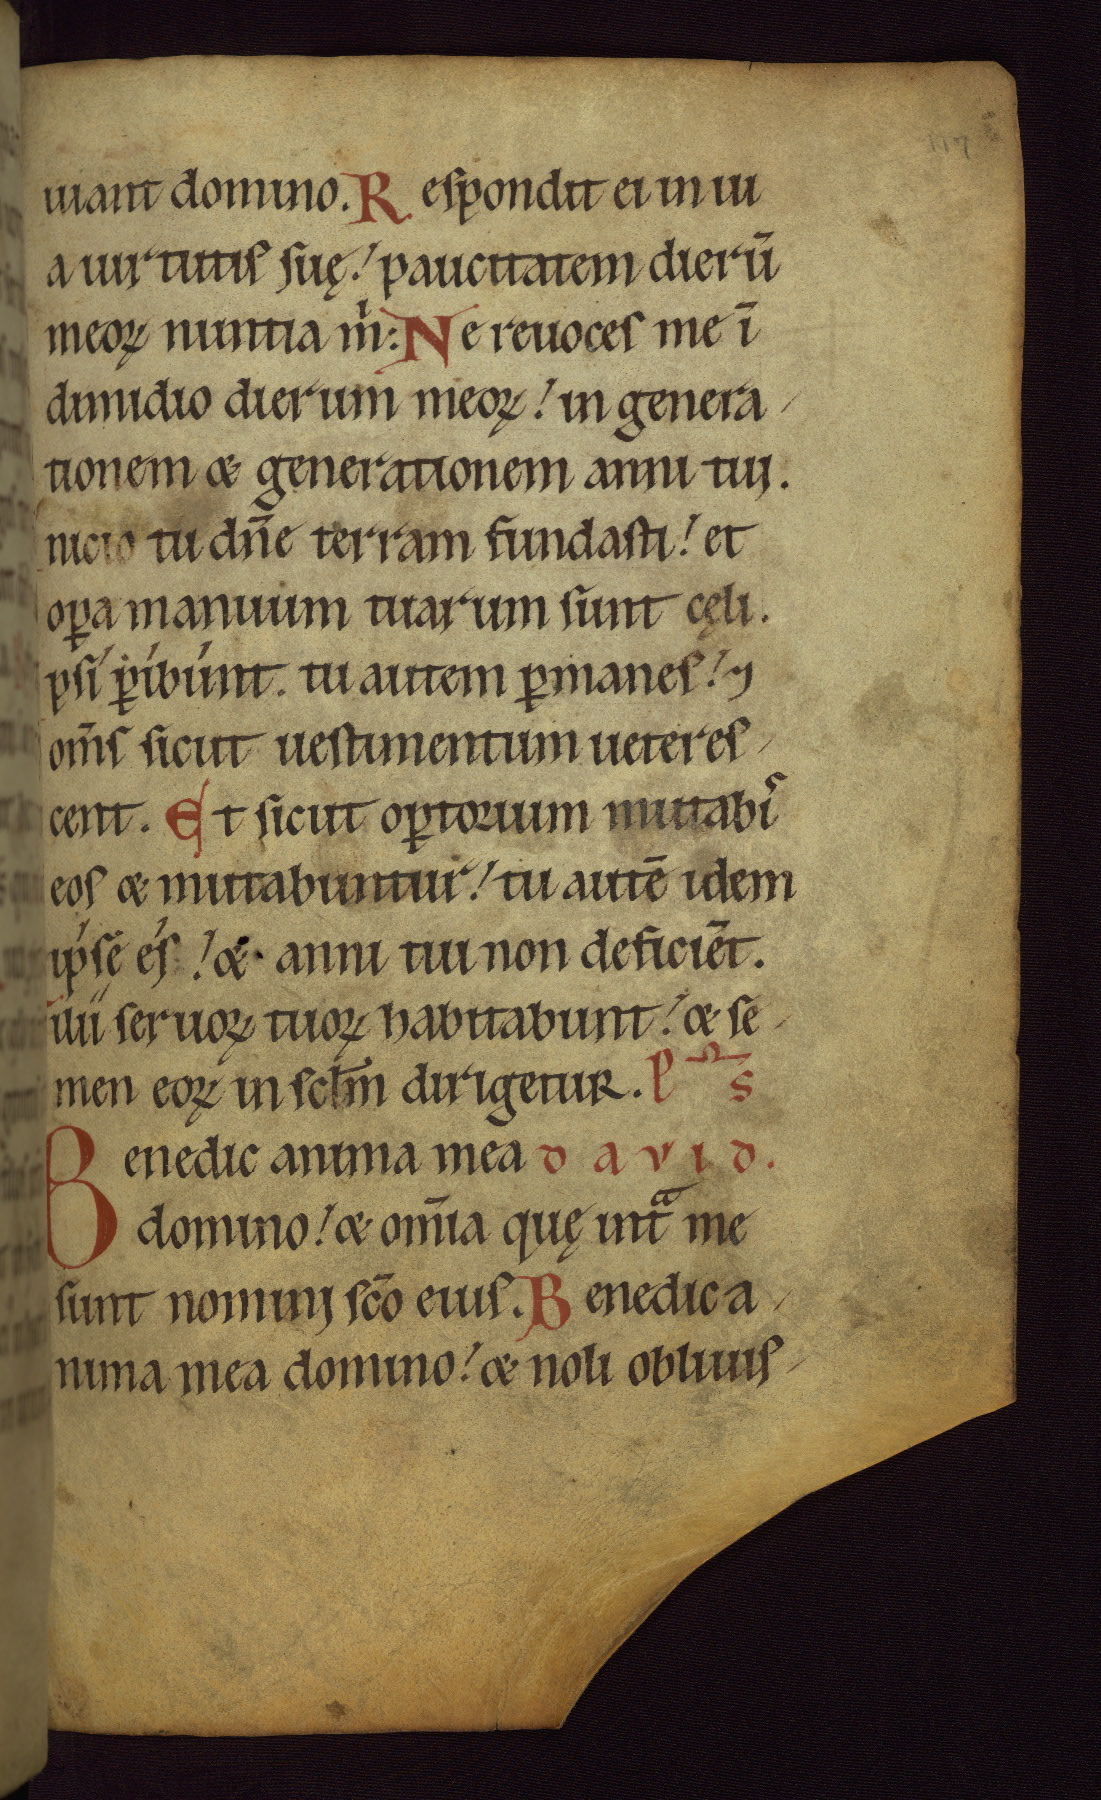 uiant domino. Respondit ei in ui
a uirtutis suę! paucitatem dierū
meoꝝ nuntia m̍: Ne reuoces me ī
dimidio dierum meoꝝ! in genera
tionem & generationem anni tui.
nicio tu dn̄e terram fundasti! et
oꝑa manuum tuarum sunt cęli.
psi ꝑibunt. tu autem ꝑmanes! ⁊
om̄s sicut uestimentum ueteres
cent. Et sicut oꝑtorium mutabiˢ
eos & mutabuntur! tu autē idem
ipsę es! & anni tui non deficiēt.
ilii seruoꝝ tuoꝝ habitabunt! & se
men eoꝝ in sclm̄ dirigetur. Ps
Benedic anima mea DAVID.
domino! & om̄ia quę intᵃ me
sunt nomini scō eius. Benedic a
nima mea domino! & noli obliuis